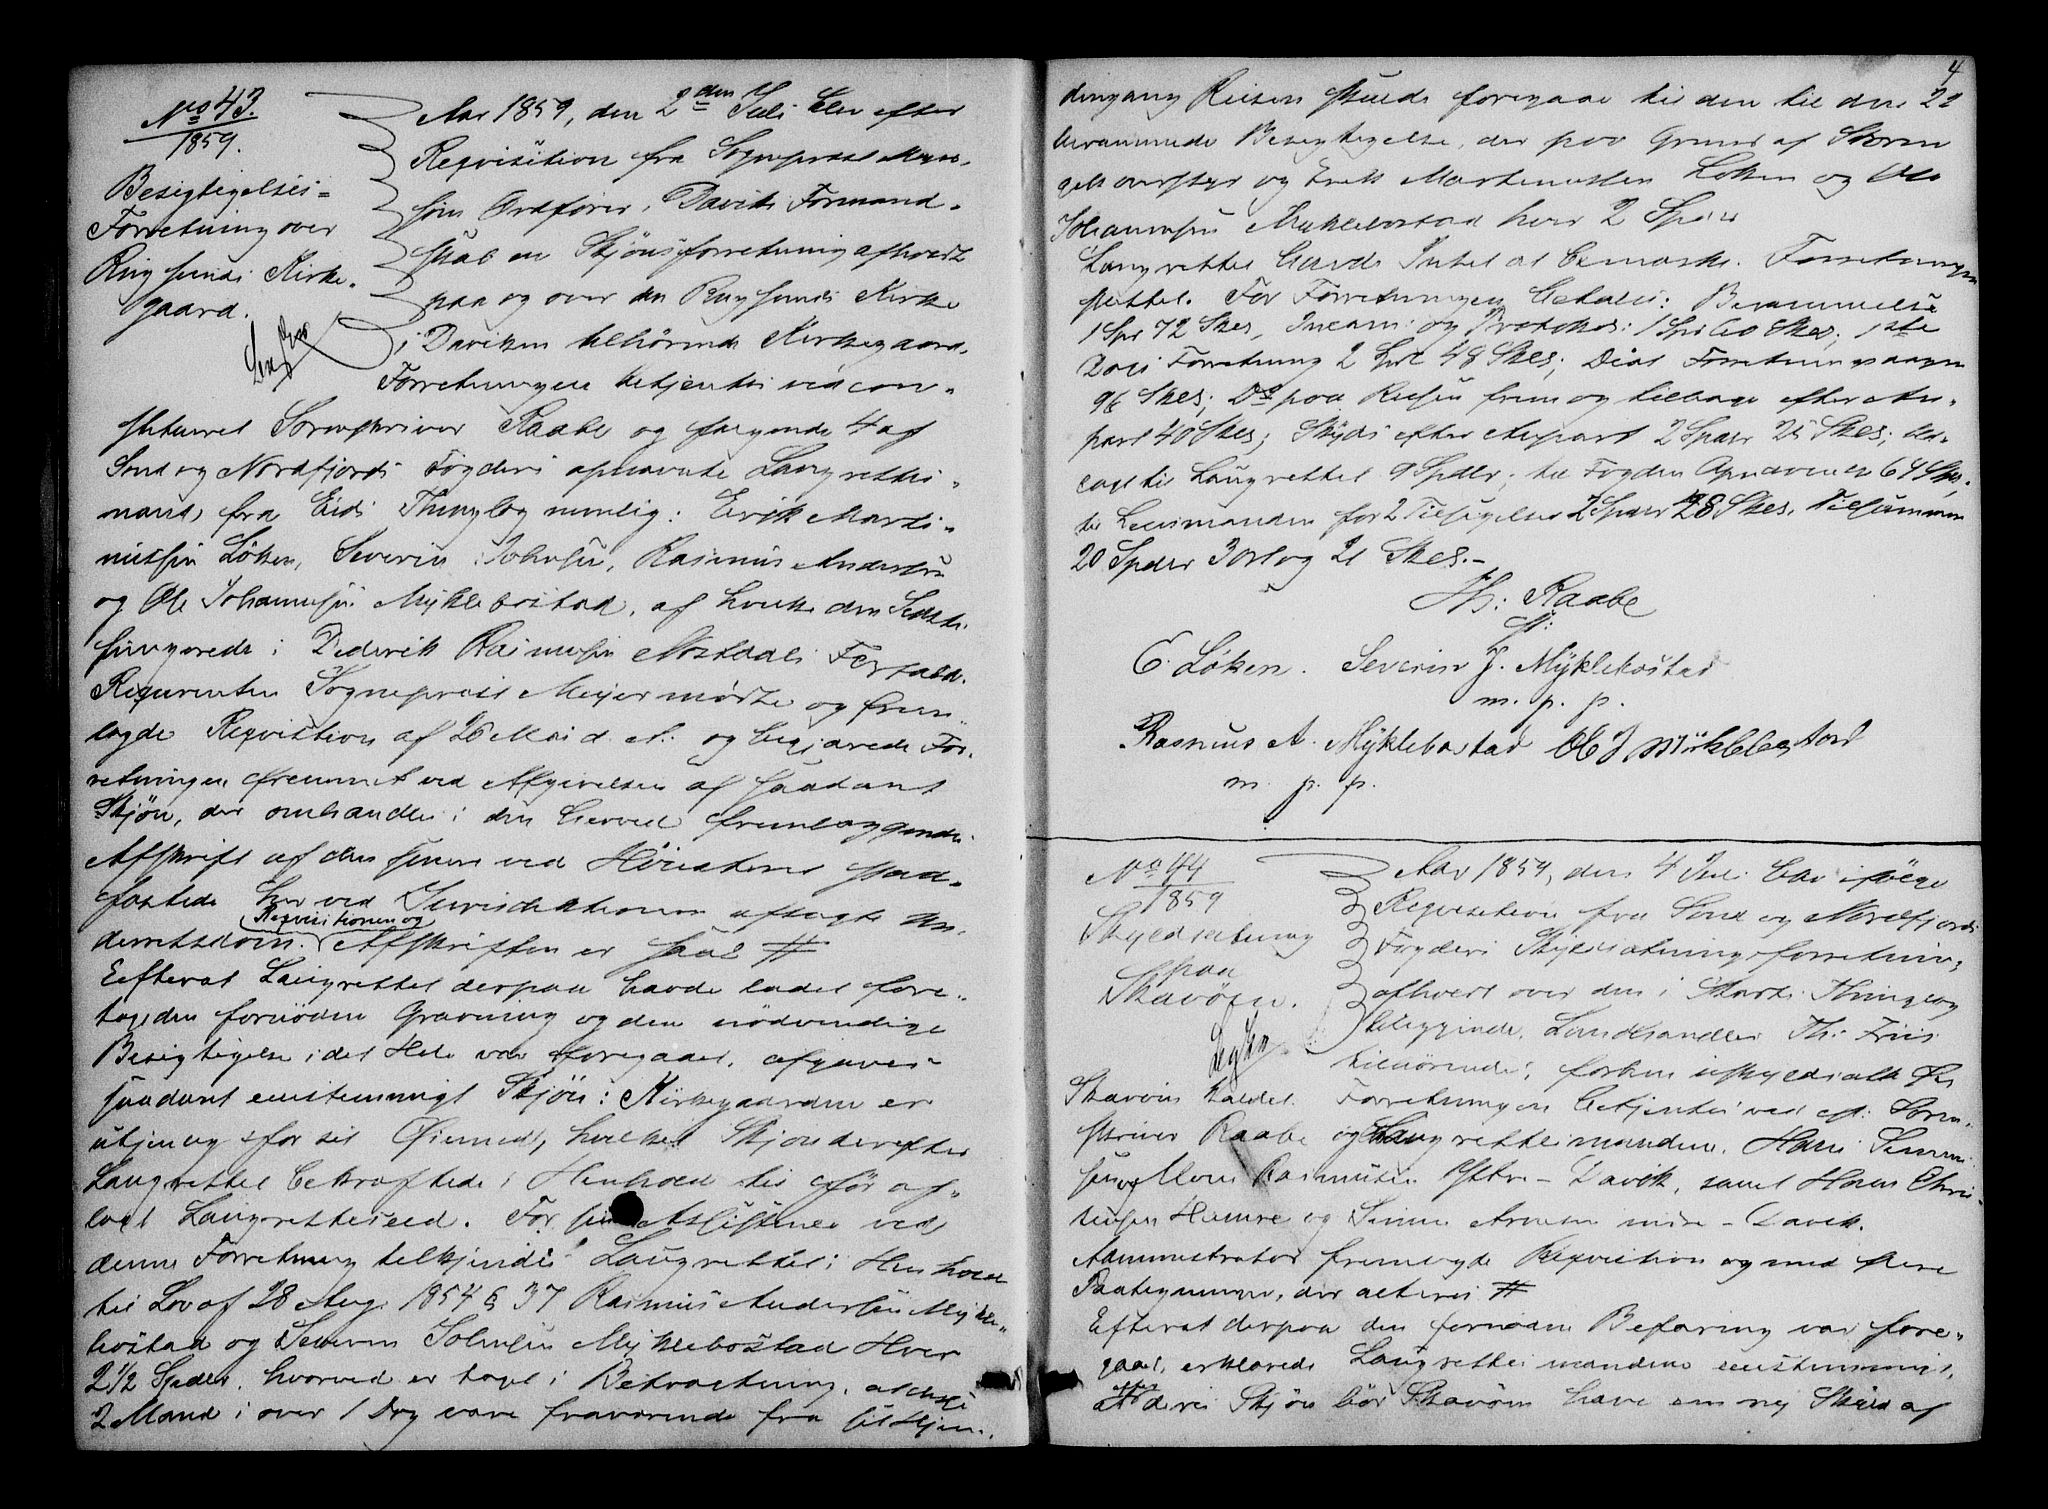 No 43.
1859.
Besigtigelses-
Forretning over
Rugsunds Kirke-
gaard.
Aar 1859, den 2den Juli blev efter
Reqvisition fra Sogneprest Meyer
som Ordfører i Daviks Formand-
skab en Skjönsforretning afholdt
paa og over den Rugsunds Kirke
i Daviken tilhörende Kirkegaard.
Forretningen betjentes ved con-
stitueret Sorenskriver Raabe og følgende 4 af
Sond og Nordfjords Fogderi opnævnte Laugrettes-
mænd, fra Eids Thinglag nemlig: Erik Marti-
nussen Löken, Severin Johnsen, Rasmus Andersen
og Ole Johannesen Myklebostad, af hvilke den Sidste
fungerede i Diderik Rasmussen Nostdals Forfald.
Reqvirenten Sogneprest Meyer mødte og frem-
lagde Reqvisition af 26 Mai d. A. og begjærede For-
retningen fremmet ved Afgivelsen af saadant
Skjön, der omhandles i den herved fremlæggende
Afskrift af den
Afskriften er saal. #
Reqvisitionen og
Efterat Laugrettet derpaa havde ladet fore-
tage den fornödne Gravning og den nödvendige
Besigtigelse i det Hele var foregaaet, afgaves
saadant eenstemmigt Skjön: Kirkegaarden er
utjenlig for sit Öiemed, hvilket Skjön derefter
Laugrettet bekræftede i Henhold til för af-
lagt Laugretteseed. For sin Assistence ved
denne Forretning tilkjendes Laugrettet i Henhold
til Lov af 28 Aug. 1854 § 37 Rasmus Andersen Mykle-
bostad og Severin Johnsen Myklebostad Hver
2 1/2 Spdlr, hvorved er taget i Betragtning, at disse
2 Mænd i over 1 Dag vare fraværende fra sit Hjem,
4
dengang Reisen skulde foregaae til den til den 22
berammede Besigtigelse, der paa Grund af Storm
gik overstyr og Erik Martinussen Löken og Ole
Johannesen Myklebostad hver 2 Spdlr
Laugrettet havde Intet at bemærke. Forretningen
sluttet. For Forretningen betales: Berammelse
1 Spd 72 Skr, Incam. og Protokol: 1 Spd 60 Skr; 1ste
Dags Forretning 2 Spd 48 Skr; Diæt Forretningsdagen
96 Skr; Do paa Reisen frem og tilbage efter An-
part 40 Skr; Skyds efter Anpart 2 Spdlr 25 Skr; Be-
talt til Laugrettet 9 Spdlr; til Fogden Opnævnelse 64 Skr,
til Lensmanden for 2 Tilsigelser 2 Spdlr 48 Skr. Tilsammen
20 Spdlr 3 Ort og 21 Skr.-
Th: Raabe
cst:
E. Löken. Severin J. Myklebostad
m. p. p.
Rasmus A. Myklebostad Ole J Myklebostad
m. p. p.
No 44
1859
Skyldsætning
paa
Skavöen.
Aar 1859, den 4 Juli blev ifölge
Reqvisition fra Sond og Nordfjords
Fogderi Skyldsætningsforretning
afholdt over den i Thinglag
beliggende, Landhandler Th: Friis
tilhörende, forhen uskyldsatte Öe
Skavöen kaldet. Forretningen betjentes ved cst. Soren-
skriver Raabe og Laugrettesmændene, Hans
og Mons Rasmussen Ytre-Davik, samt Hans Chris-
tensen Humre og Simon Arnesen indre-Davik.
Administrator fremlagde Reqvisition med flere
Paategninger, der alt #
Efterat derpaa den fornödne Befaring var fore-
gaaet, erklærede Laugrettesmændene eenstemmigt,
at efter deres Skjön bör Skavöen have en ny Skyld af